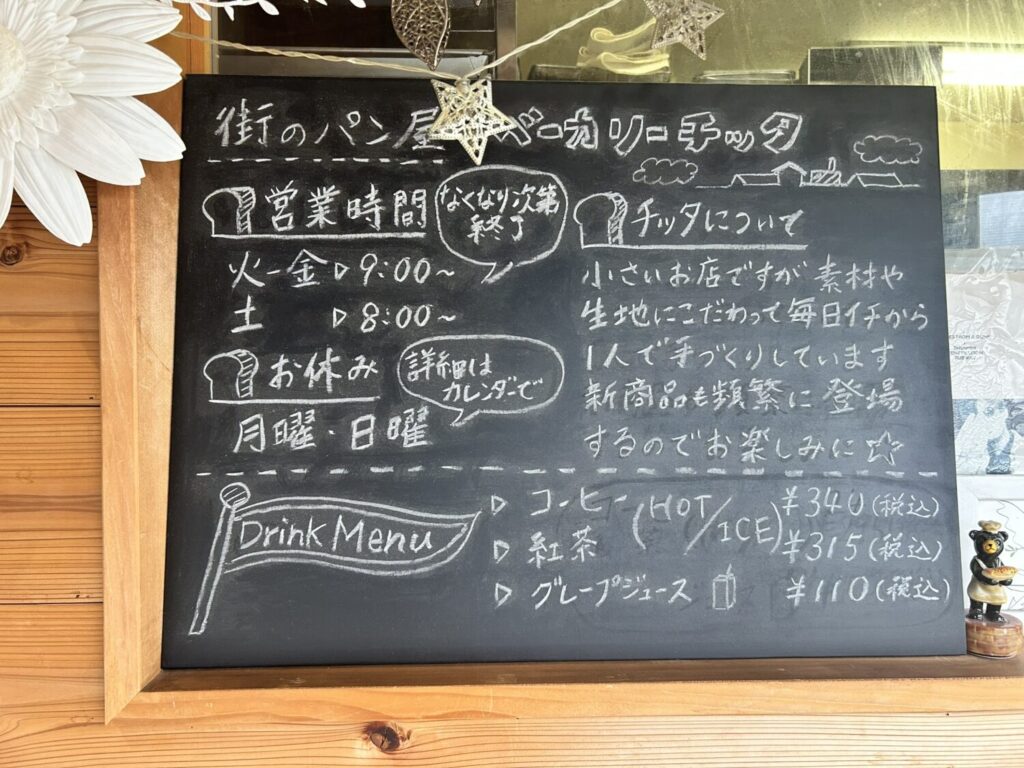 街のパン屋 ベーカリーチッタ
営業時間
なくなり次第
終了
火-金▷9:00~
土 ▷8:00~
お休み
詳細は
カレンダーで
月曜・日曜
チッタについて
小さいお店ですが素材や
生地にこだわって毎日イチから
1人で手づくりしています
新商品も頻繁に登場
するのでお楽しみに☆
Drink Menu
▷ コーヒー (HOT/ICE) ¥340(税込)
▷ 紅茶 ¥315(税込)
▷ グレープジュース ¥110(税込)